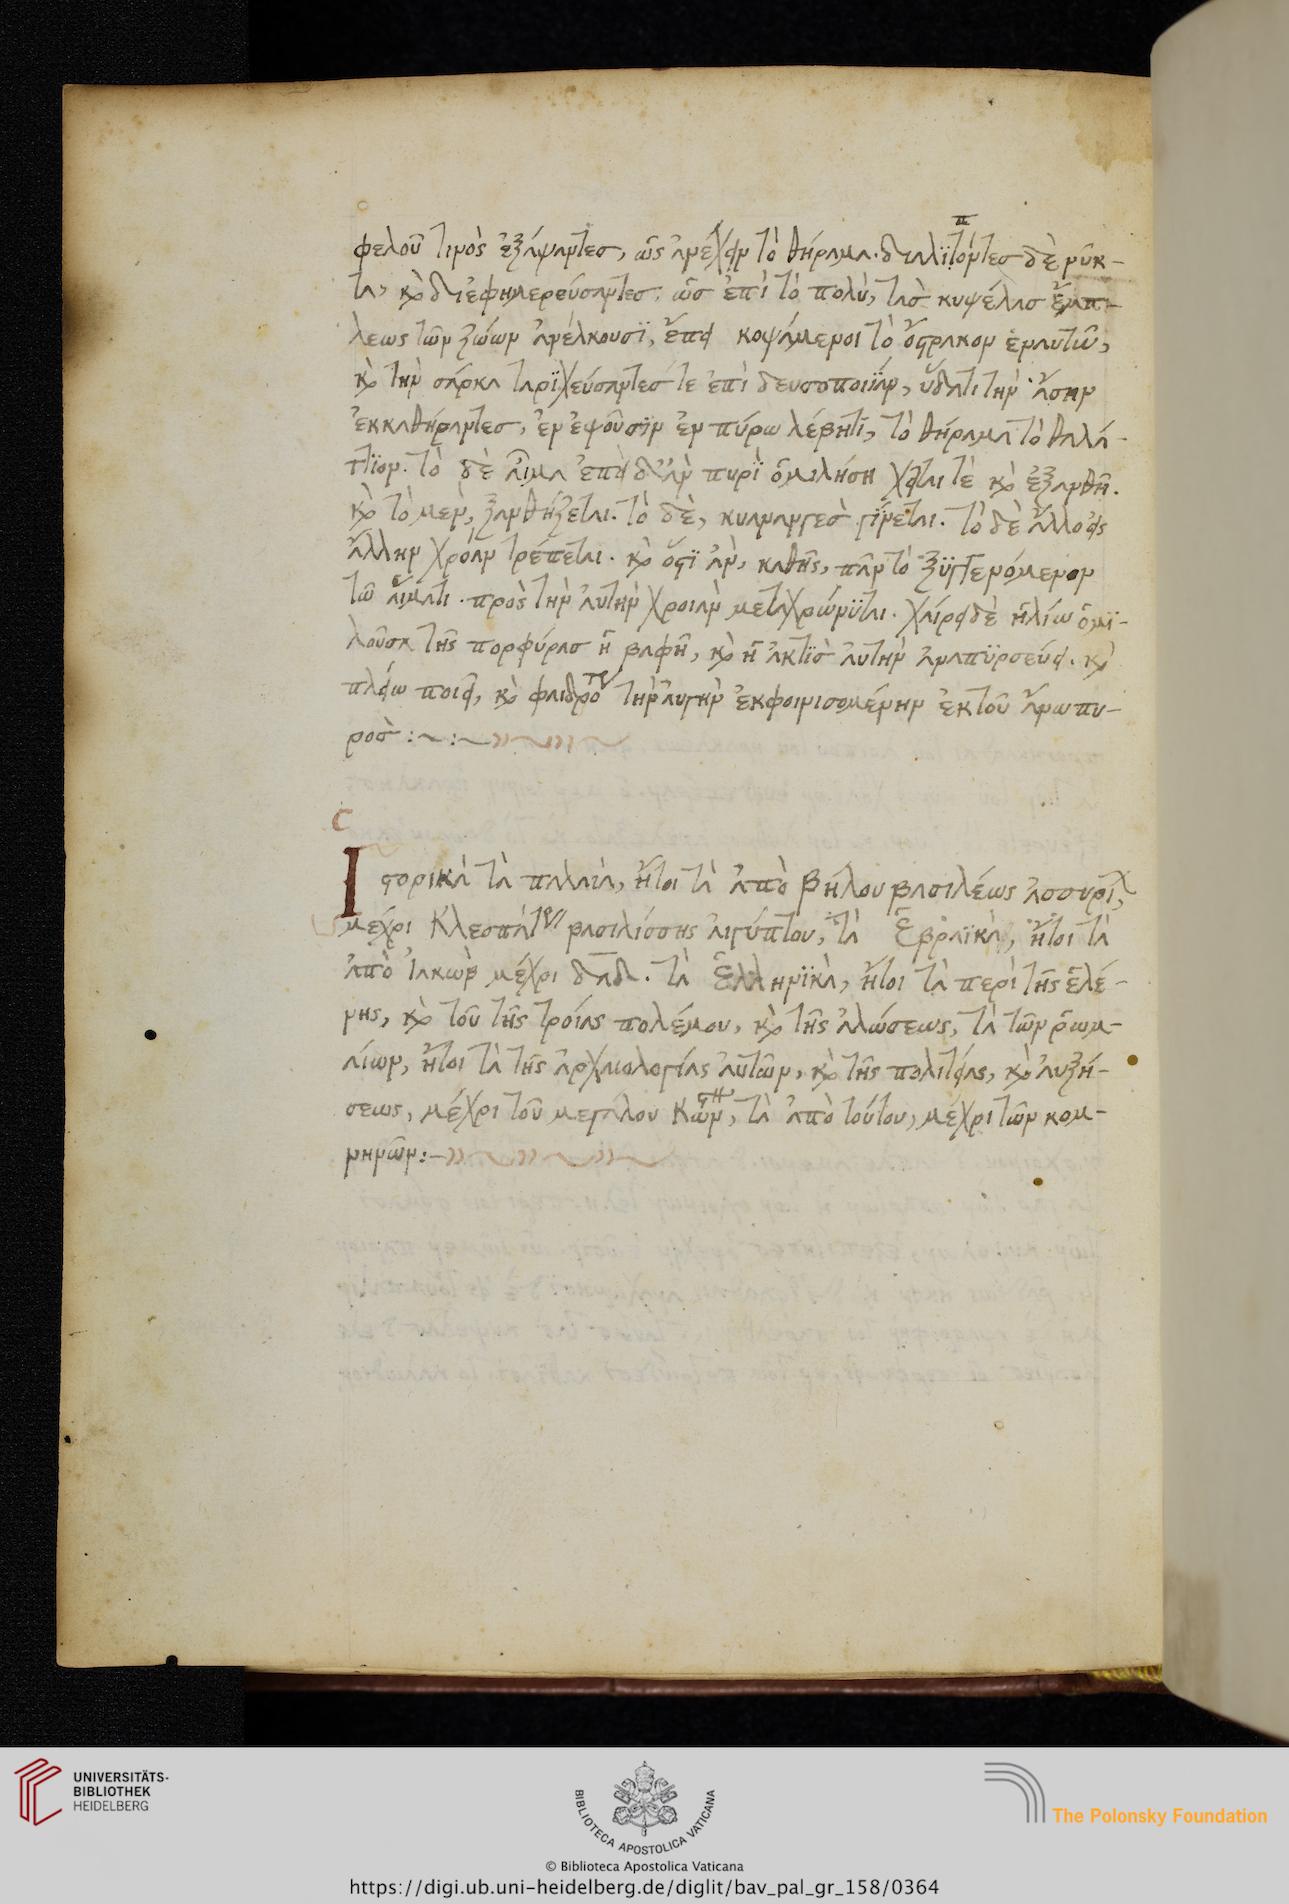 φελοῦ τινὸς ἐξάψαντες, ὡς ἀνέχειν τὸ θήραμα. διαλιπόντες δὲ νύκ-
τα, καὶ διεφημερεύσαντες, ὡς ἐπὶ τὸ πολὺ, τὰς κυψέλας ἔμπ-
λεως τῶν ζώων ἀνέλκουσϊ, ἔπει κοψάμενοι τὸ ὄστρακον ἐναυτῶ,
καὶ τὴν σάρκα ταρϊχεύσαντες τε ἐπὶ δευσοποιΐαν, ὕδατι τὴν ἄσην
ἐκκαθήραντες, ἐν ἑψοῦσϊν ἐν πύρω λέβητϊ, τὸ θήραμα τὸ θαλά-
ττϊον. τὸ δὲ αἷμα ἐπειδ' ἂν πυρϊ ὁμιλήση χεῖται τὲ καὶ ἐξανθῆ.
καὶ τὸ μεν, ξανθήζεται. τὸ δὲ, κυαναυγεσ γΐνεται. τὸ δὲ ἄλλο εἰς
ἄλλην χρόαν τρέπεται. καὶ ὅστϊ ἂν, καθῆς, πᾶν τὸ ξϋγγενόμενον
τῶ αἵματι. πρὸς τὴν αὐτὴν χροιὰν μεταχρώννϋται. χαίρει δὲ ἡλίω ὁμϊ-
λοῦσα τῆς πορφύρας ἡ βαφὴ, καὶ ἡ ἀκτϊσ αὐτὴν ἀναπϋρσεύει. καὶ
πλείω ποιεῖ, καὶ φαιδροτέραν τὴν αὐγὴν ἐκφοινισομένην ἐκ τοῦ ἄνω πυ-
ρὸς :~:~
Ιστορικὰ τὰ παλαιὰ, ἤτοι τὰ ἀπὸ Βήλου βασιλέως ἀσσυρί,
μέχρι Κλεοπάτρας βασιλίσσης αἰγύπτου, τὰ Ἑβραϊκὰ, ἤτοι τὰ
ἀπὸ Ἰακὼβ μέχρι δαδ. τὰ Ἑλληνϊκὰ, ἤτοι τὰ περὶ τῆς ἑλέ-
νης, καὶ τοῦ τῆς τροίας πολέμου, καὶ τῆς ἁλώσεως, τὰ τῶν ῥωμ-
αίων, ἤτοι τὰ τῆς ἀρχαιολογίας αὐτῶν, καὶ τῆς πολιτείας, καὶ αὐξή-
σεως, μέχρι τοῦ μεγάλου Κων, τὰ ἀπὸ τούτου, μέχρι τῶν κομ-
νηνῶν:-
UNIVERSITÄTS-
BIBLIOTHEK
HEIDELBERG
BIBLIOTECA APOSTOLICA VATICANA
The Polonsky Foundation
© Biblioteca Apostolica Vaticana
https://digi.ub.uni-heidelberg.de/diglit/bav_pal_gr_158/0364